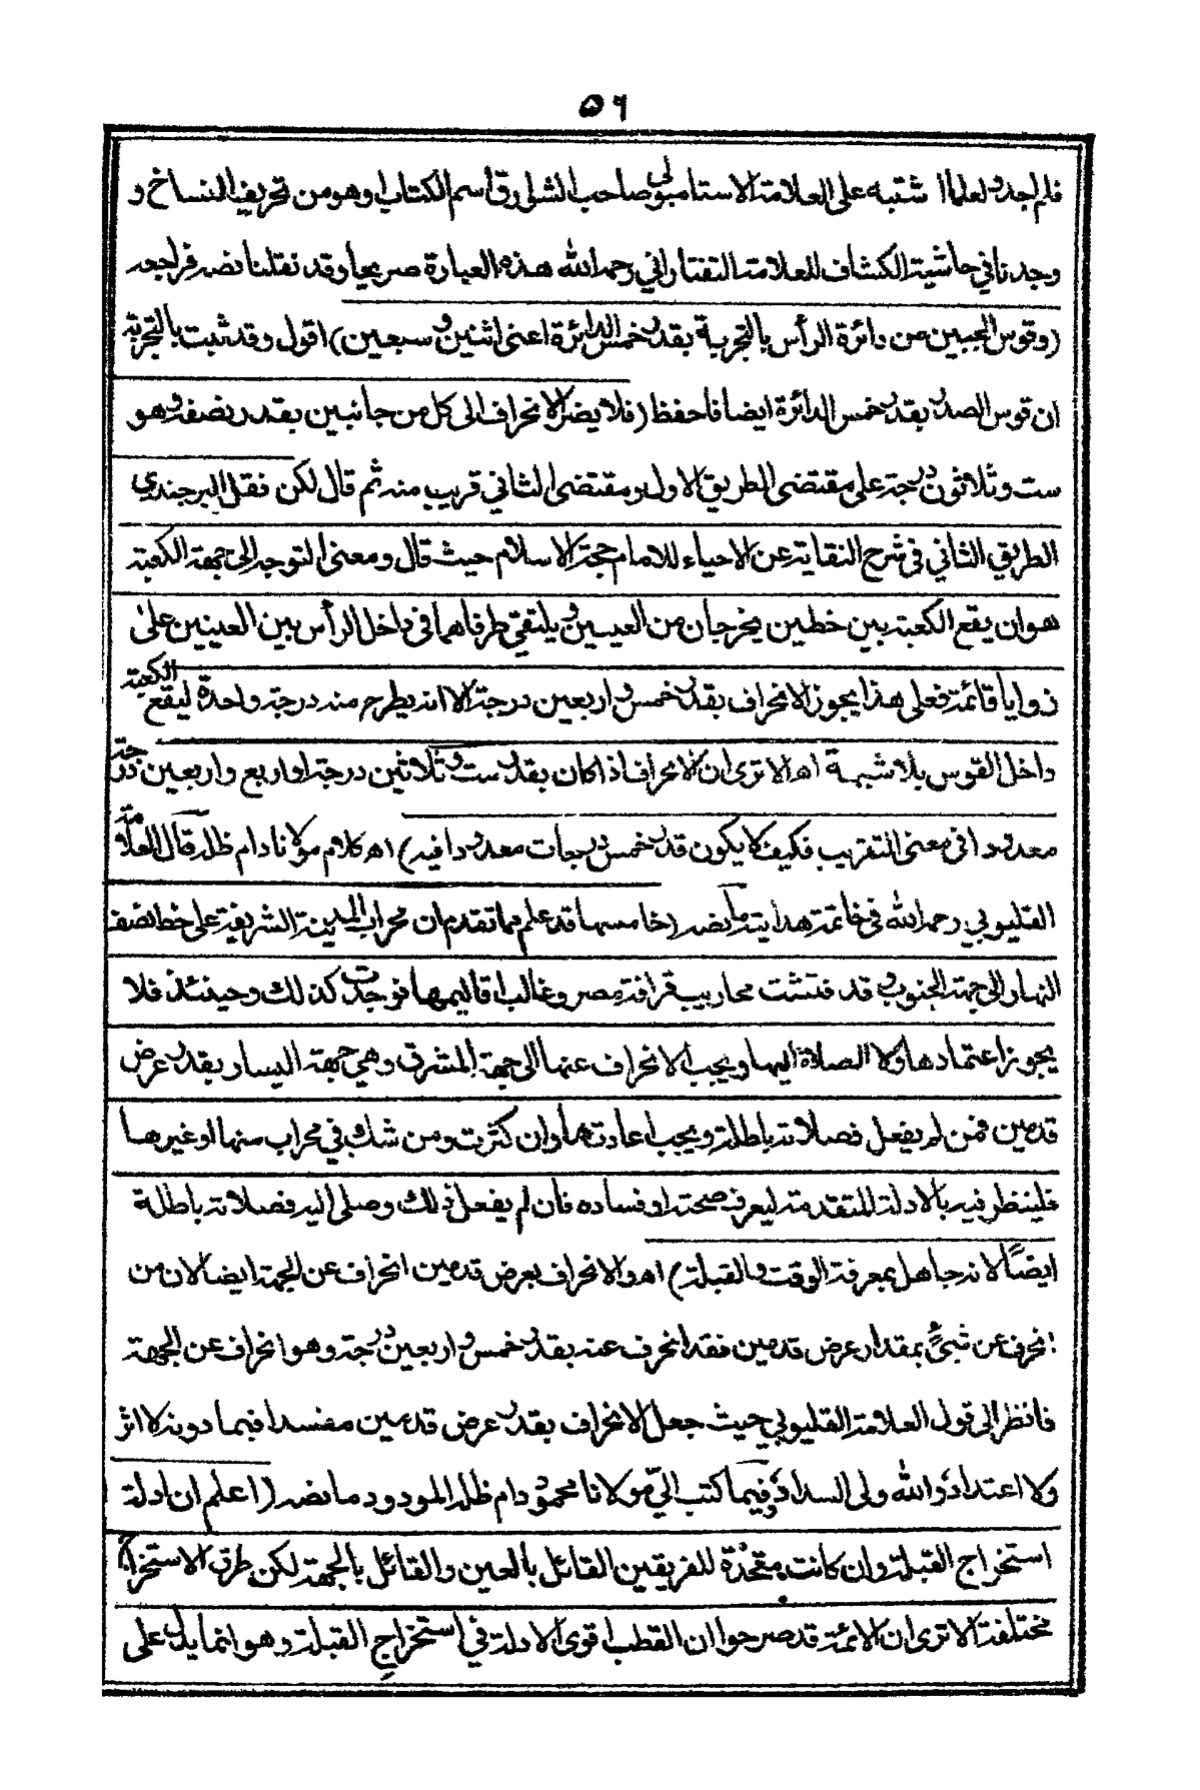 ٥٦
فلم اجده ولعلما اشتبه على العلامة الاستامبولي صاحب الشارق اسم الكتاب وهو من تحريف النساخ و
وجدنا في حاشية الكشاف للعلامة التفتازاني رحمه الله هذه العبارة صريحا وقد نقلنا نصه فراجعه
(وقوس الجبين من دائرة الرأس بالتجربة بقدر خمس الدائرة اعني اثنين و سبعين) اقول وقد ثبت بالتجربة
ان قوس الصدر بقدر خمس الدائرة ايضا فاحفظ (فلا يضر الانحراف الى كل من جانبين بقدر نصفه وهو
ست وثلاثون درجة على مقتضى الطريق الاول ومقتضى الثاني قريب منه ثم قال لكن نقل البرجندي
الطريق الثاني في شرح النقاية عن الاحياء للامام حجة الاسلام حيث قال ومعنى التوجه الى جهة الكعبة
هو ان يقع الكعبة بين خطين يخرجان من العينين ويلتقي طرفاهما في داخل الرأس بين العينين على
زوايا قائمة فعلى هذا يجوز الانحراف بقدر خمس و اربعين درجة الا انه يطرح منه درجة واحدة ليقع الكعبة
داخل القوس بلا شبهة اه الا ترى ان الانحراف اذا كان بقدر ست و ثلاثين درجة او اربع واربعين درجة
معدودا في معنى التقريب فكيف لا يكون قدر خمس درجات معدودا فيه) اه كلام مولانا دام ظله قال العلامة
القليوبي رحمه الله في خاتمة هدايته ما نصه (خامسها قد علم مما تقدم ان محراب المدينة الشريفة على خط نصف
النهار الى جهة الجنوب و قد فتشت محاريب قرافة مصر وغالب اقاليمها فوجدت كذلك وحينئذ فلا
يجوز اعتمادها ولا الصلاة اليها ويجب الانحراف عنها الى جهة المشرق وهي جهة اليسار بقدر عرض
قدمين فمن لم يفعل فصلاته باطلة ويجب اعادتها وان كثرت ومن شك في محراب منها او غيرها
فلينظر فيه بالادلة المتقدمة ليعرف صحته او فساده فان لم يفعل ذلك وصلى اليه فصلاته باطلة
ايضًا لانه جاهل بمعرفة الوقت والقبلة) اه والانحراف بعرض قدمين انحراف عن الجهة ايضا لان من
انحرف عن شيءٍ بمقدار عرض قدمين فقد انحرف عنه بقدر خمس و اربعين درجة وهو انحراف عن الجهة
فانظر الى قول العلامة القليوبي حيث جعل الانحراف بقدر عرض قدمين مفسدا فيما دونه لا اثر
ولا اعتداد والله ولي السداد وفيما كتب اليّ مولانا محمود دام ظله المودود ما نصه (اعلم ان ادلة
استخراج القبلة وان كانت متحدة للفريقين القائل بالعين والقائل بالجهة لكن طرق الاستخراج
مختلفة الا ترى ان الائمة قد صرحوا ان القطب اقوى الادلة في استخراج القبلة وهو انما يدل على